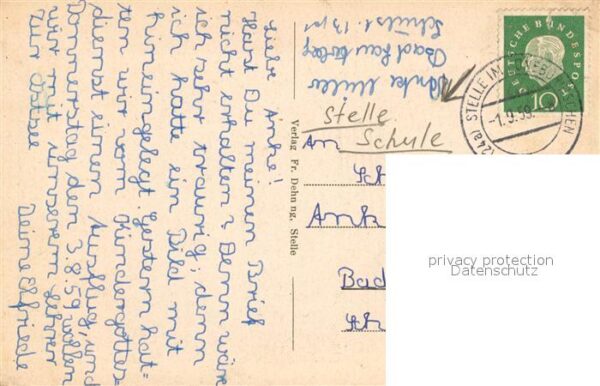 Liebe Anke!
Hast Du meinen Brief
nicht erhalten? Denn wäre
ich sehr traurig, denn
ich hatte ein Bild mit
hineingelegt. Gestern hat=
ten wir vom Kindergottes=
dienst einen Ausflug, und
Donnerstag den 3.8.59 wollen
wir mit unserem Lehrer
zur Ostsee
Deine Elfriede
Verlag Fr. Dehning, Stelle
Anke
Bad Lauterberg
Schulstr. 13
Stelle
Schule
An
Sch
Ank
Bad
Sch
DEUTSCHE BUNDESPOST
10
(24a) STELLE
-1.9.59
privacy protection
Datenschutz